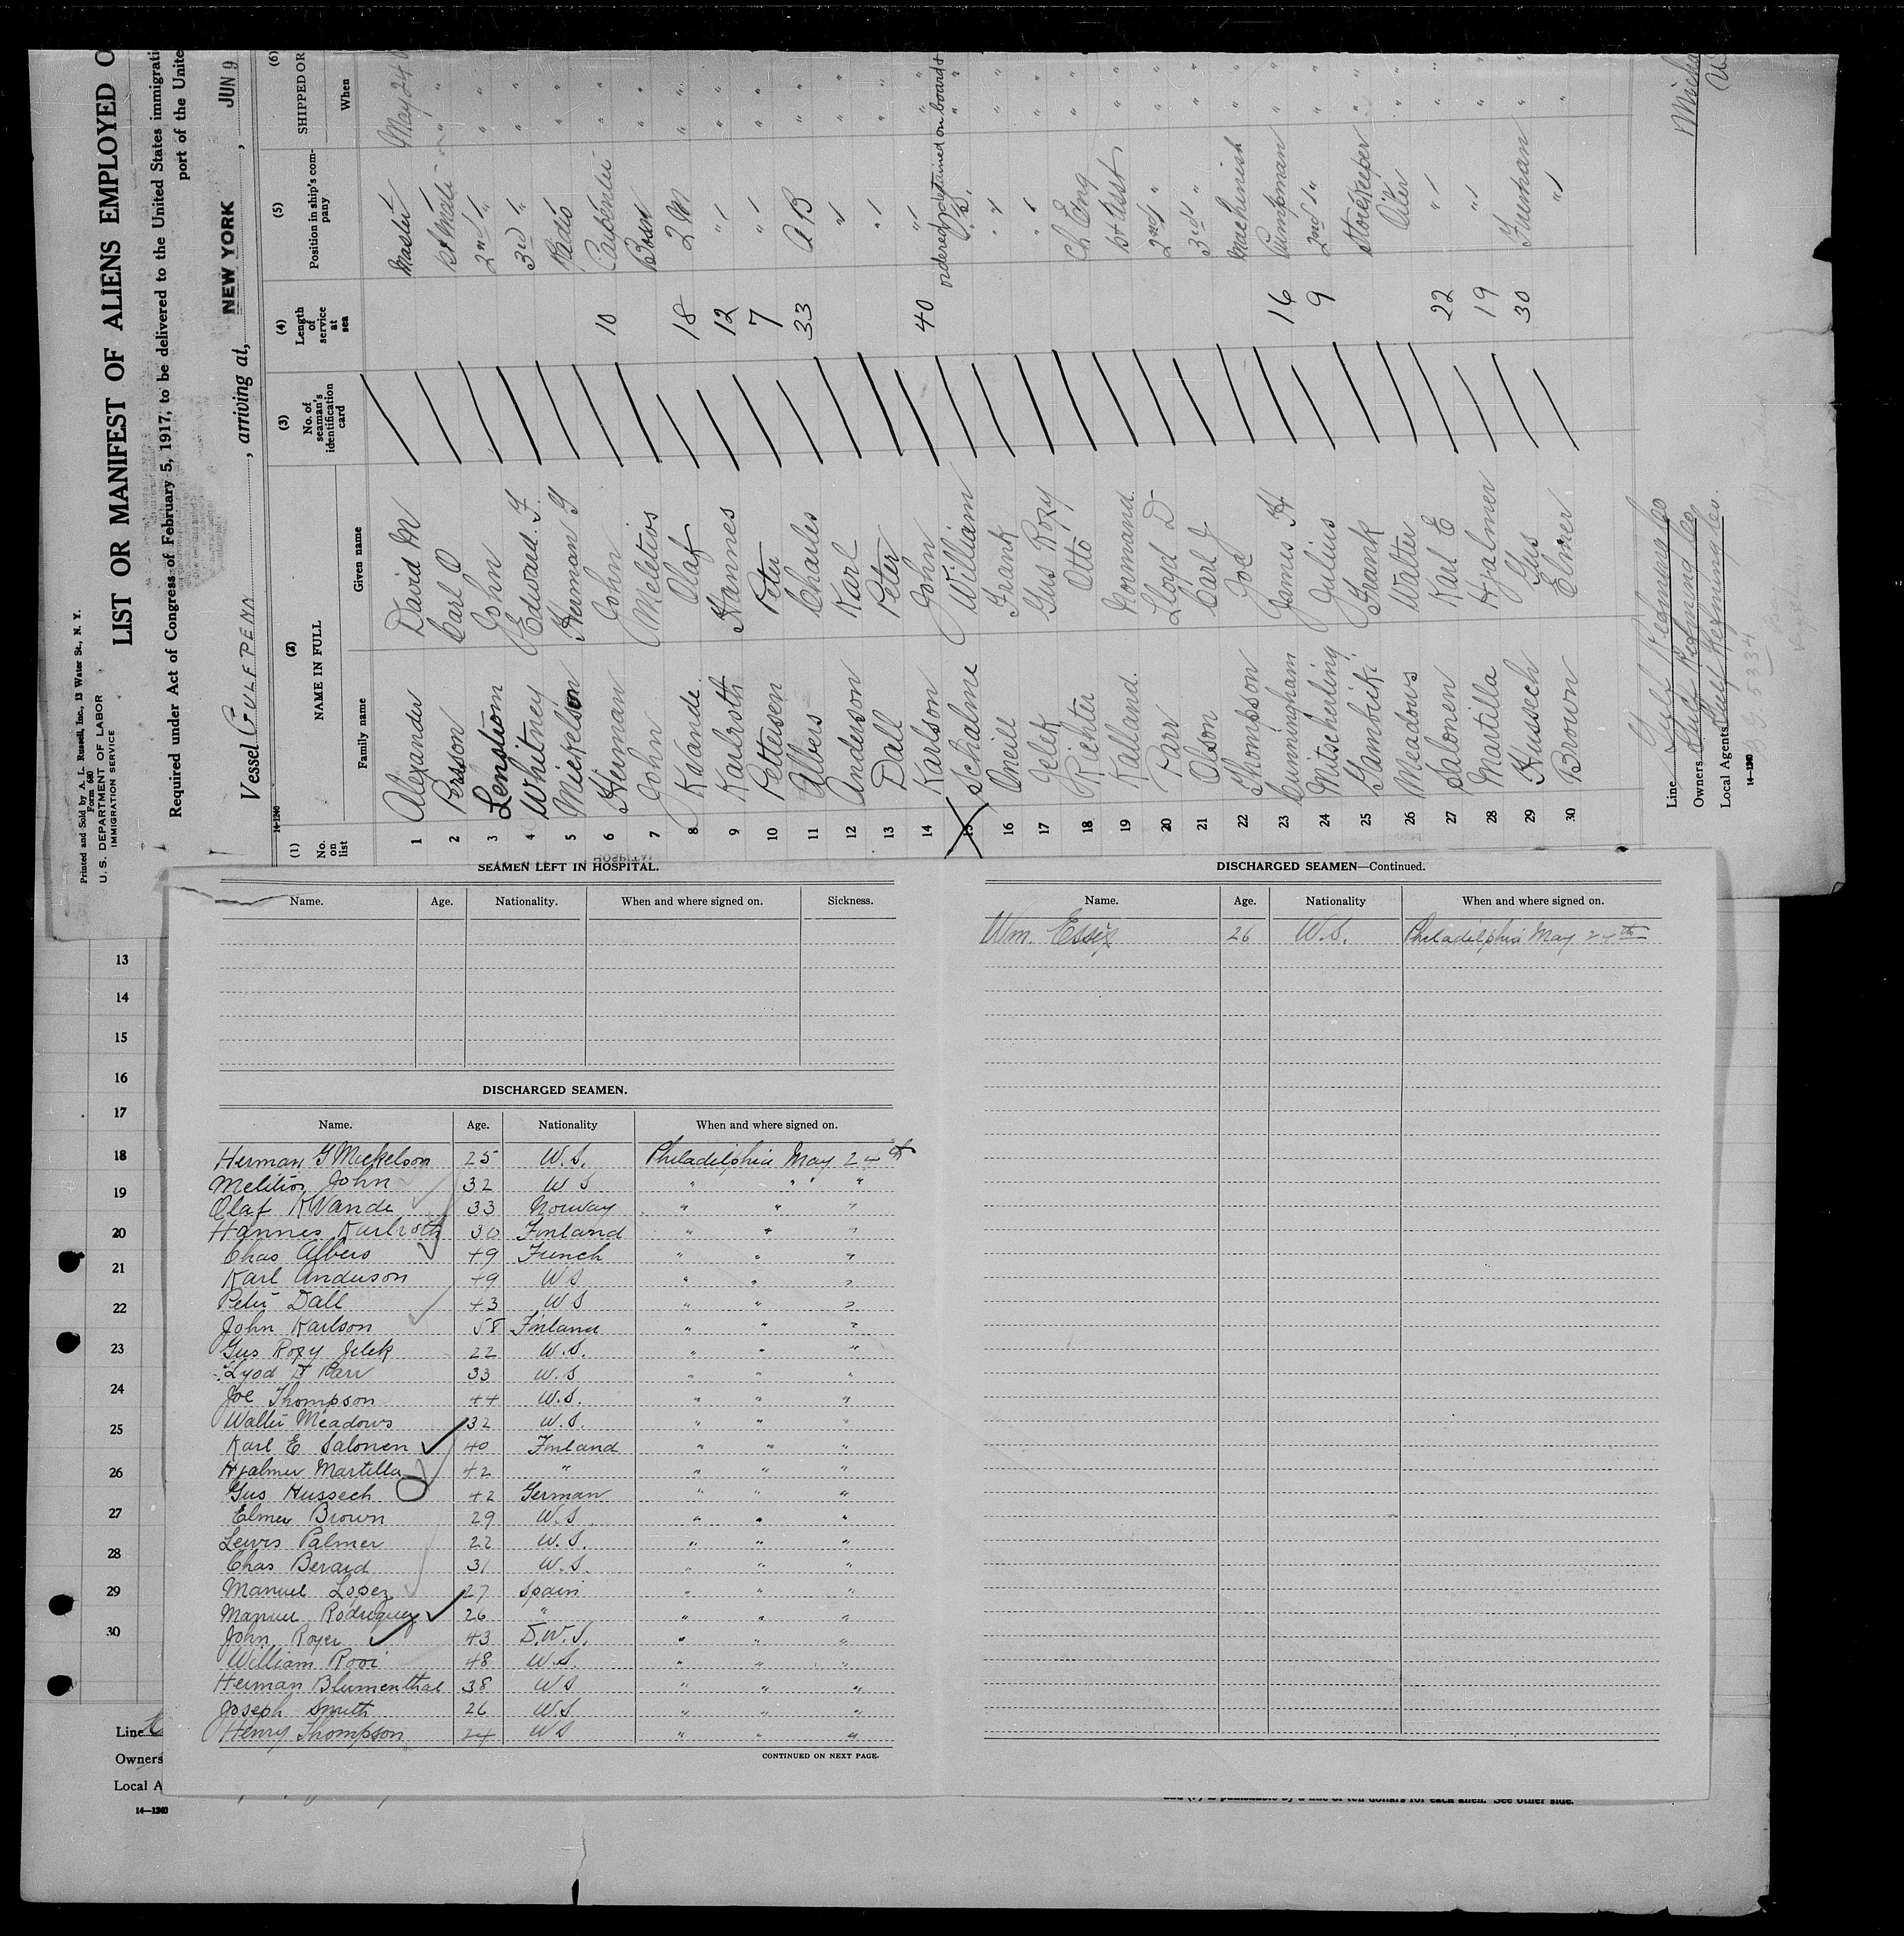 Printed and Sold by A. L. Russell, Inc., 13 Water St., N. Y.
Form 680
U. S. DEPARTMENT OF LABOR
IMMIGRATION SERVICE
LIST OR MANIFEST OF ALIENS EMPLOYED O
Required under Act of Congress of February 5, 1917, to be delivered to the United States immigrati
port of the Unite
Vessel GULFPENN, arriving at, NEW YORK, JUN 9
14-1240
(1) No. on list (2) NAME IN FULL Family name Given name (3) No. of seaman's identification card (4) Length of service at sea (5) Position in ship's company (6) SHIPPED OR When
1 Alexander David M Master May 24
2 Person Carl O 1st Mate " "
3 Lenstrom John 2nd " " "
4 Whitney Edward F. 3rd " " "
5 Mickelson Herman G Radio " "
6 Heinman John 10 Carpenter " "
7 John Meletios Bosn " "
8 Kvande Olaf 18 2 M " "
9 Karlroth Hannes 12 " " "
10 Pettersen Peter 7 " " "
11 Albers Charles 33 AB " "
12 Anderson Karl " " "
13 Dall Peter " " "
14 Karlson John 40 " " "
ordered detained on board
15 Schalme William O.S. " "
16 Oneill Frank " " "
17 Jelek Gus Rozy " " "
18 Richter Otto Ch Eng " "
19 Kalland. Normand. 1st Asst " "
20 Parr Lloyd D 2nd " " "
21 Olson Carl J 3rd " " "
22 Thompson Joe Machinist " "
23 Cunningham James H 16 Pumpman " "
24 Mitscherling Julius 9 2nd " " "
25 Gambuki Frank Storekeeper " "
26 Meadows Walter Oiler " "
27 Salonen Karl E 22 " " "
28 Martilla Hjalmer 19 " " "
29 Hussech Gus 30 Fireman " "
30 Brown Elmer " " "
Line Gulf Refining Co
Owners Gulf Refining Co.
Local Agents Gulf Refining Co.
14-1240
SEAMEN LEFT IN HOSPITAL.
Name. Age. Nationality. When and where signed on. Sickness.
DISCHARGED SEAMEN.
Name. Age. Nationality When and where signed on.
Herman G Mickelson 25 U.S. Philadelphia May 24th
Melitios John 32 U S " " " "
Olaf KVande 33 Norway " " "
Hannes Karlroth 30 Finland " " "
Chas Albers 49 French " " "
Karl Anderson 49 U S " " "
Peter Dall 43 U S " " "
John Karlson 58 Finland " " "
Gus Rozy Jelek 22 U.S. " " "
Lyod D Parr 33 U.S " " "
Joe Thompson 44 U.S. " " "
Walter Meadows 32 U.S. " " "
Karl E Salonen 40 Finland " " "
Hjalmer Martilla 42 " " " "
Gus Hussech 42 German " " "
Elmer Brown 29 U.S. " " "
Lewis Palmer 22 U.S. " " "
Chas Berard 31 U.S. " " "
Manuel Lopez 27 Spain " " "
Manuel Rodriguez 26 " " " "
John Royer 43 D.W.I. " " "
William Rooi 48 U.S. " " "
Herman Blumenthal 38 U S " " "
Joseph Smith 26 U S " " "
Henry Thompson 24 U S " " "
CONTINUED ON NEXT PAGE.
DISCHARGED SEAMEN—Continued.
Name. Age. Nationality When and where signed on.
Wm. Essix 26 U.S. Philadelphia May 24th
13
14
15
16
17
18
19
20
21
22
23
24
25
26
27
28
29
30
Line
Owners
Local A
14—1240